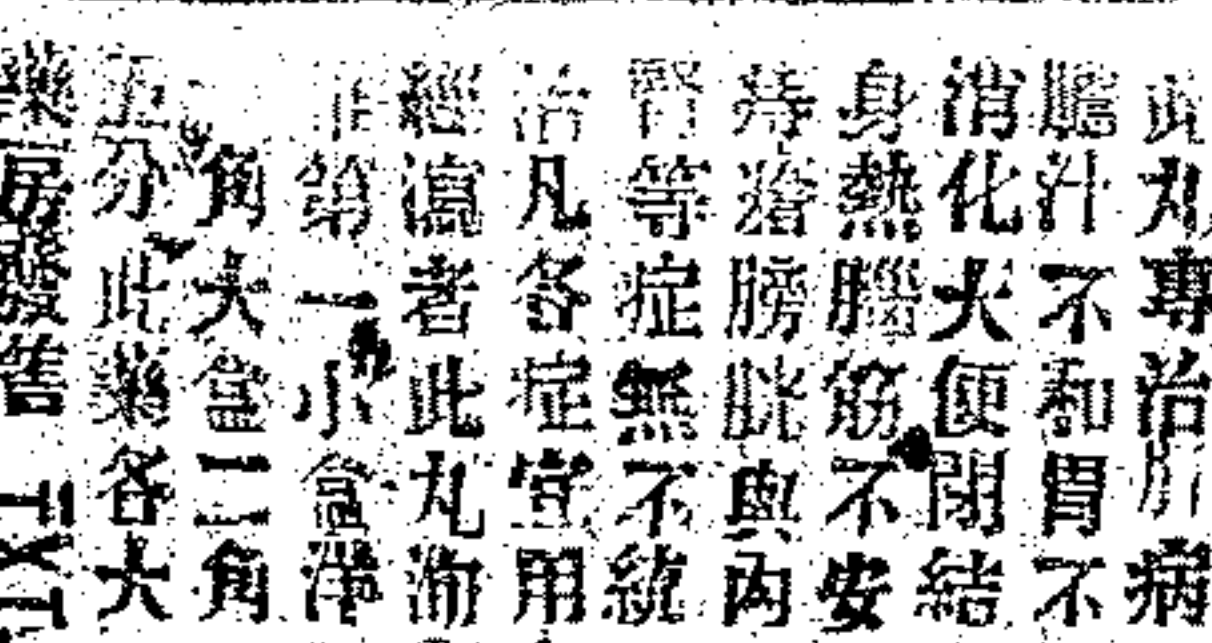 此丸專治肝病
膽汁不和胃不
消化大便閉結
身熱腦筋不安
痔瘡膀胱與內
腎等症無不統
治凡各症宜用
經瀉者此丸滯
第一小盒洋
角大盒二角
五分此藥各大
藥房發售